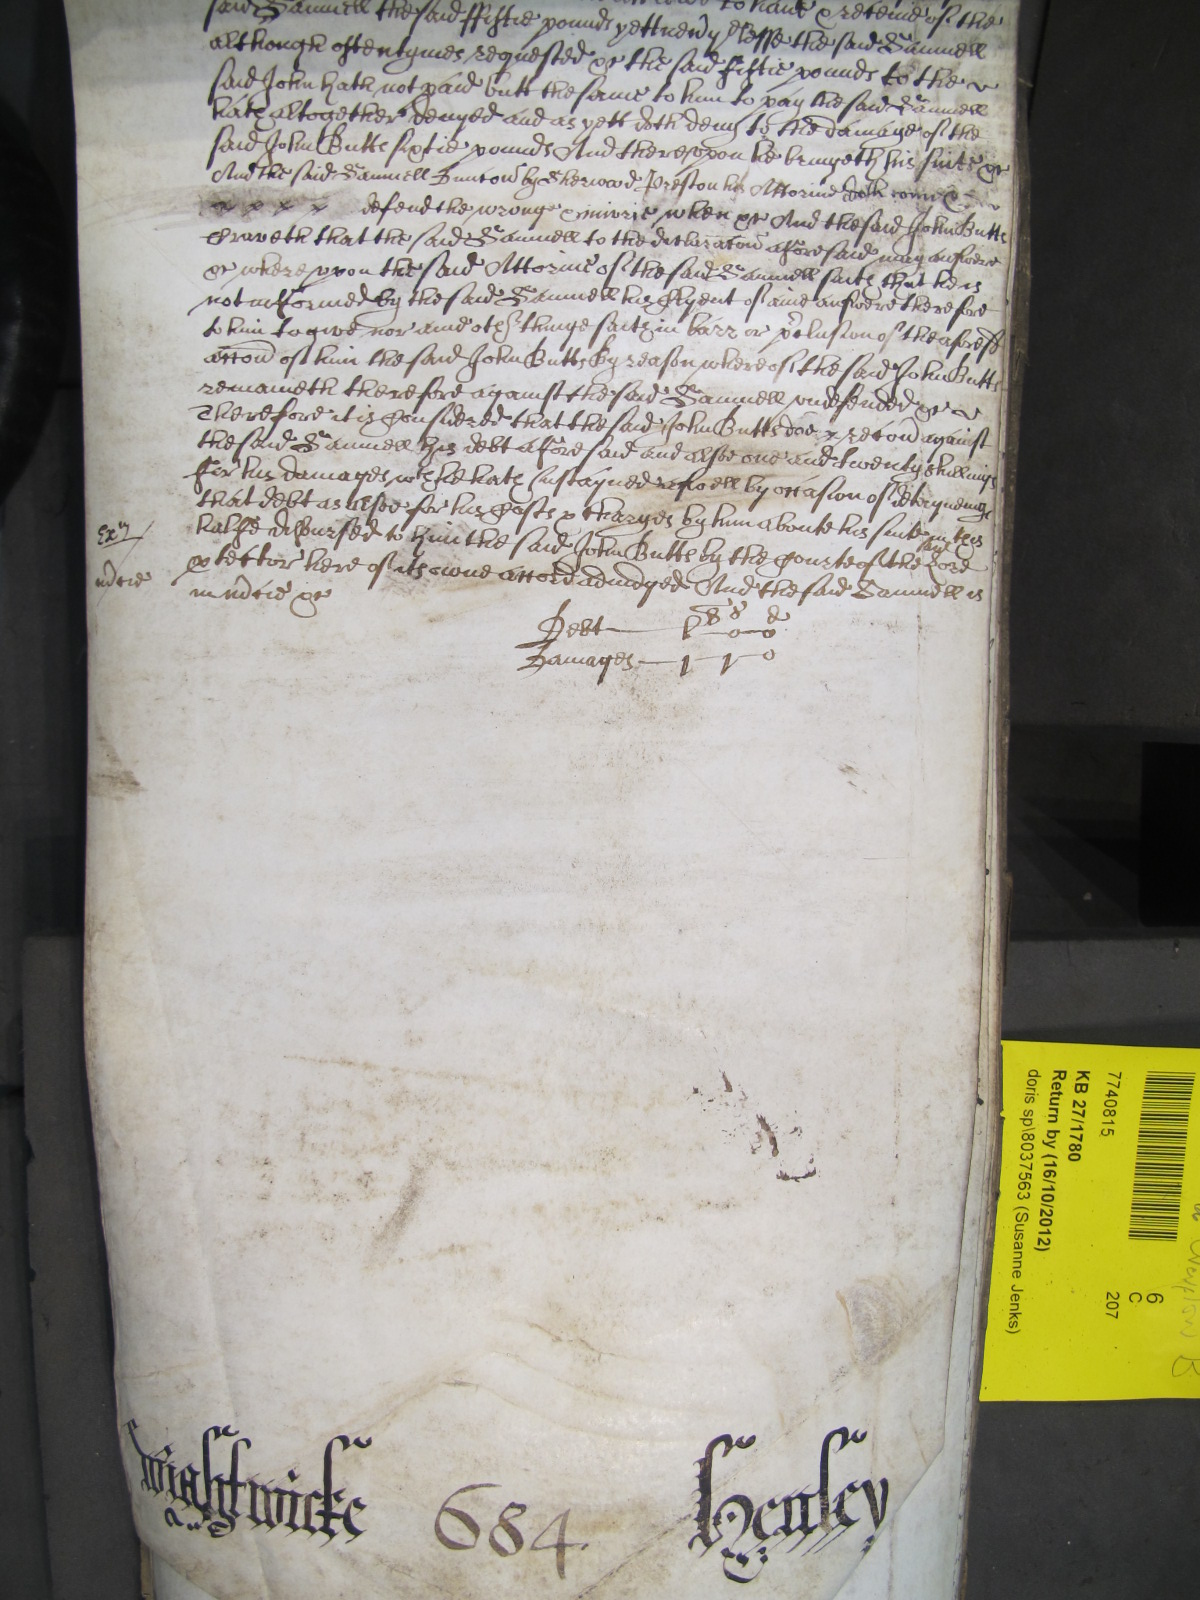 said Samuell the said ffiftie pounds yett nevertheless the said Samuell
although oftentymes requested &c the said fiftie pounds to the
said John hath not paid butt the same to him to pay the said Samuell
hath altogether denyed and as yett doth deny to the damage of the
said John Butts sixtie pounds And thereupon he bringeth his suite &c
And the said Samuell by Sherwood Preston his Attorine doth come
defend the wronge & iniurie when &c And the said John Butts
praveth that the said Samuell to the declaracon aforesaid may answere
&c whereupon the said Attorine of the said Samuell saith that he is
not informed by the said Samuell his Clyent of anie answere therefore
to him to give nor anie other thinge saith in barr or p'clusion of the aforesd
accon of him the said John Butts By reason whereof the said John Butts
remaineth therefore against the said Samuell undefended &c
Therefore it is considered that the said John Butts doe recou against
the said Samuell his debt aforesaid and alsoe one and twenty shillings
for his damages wch he hath sustayned aswell by occasion of detayneinge
that debt as alsoe for his Costs & charges by him aboute his suite in this
halfe disbursed to him the said John Butts by the Courte of the said Lord
Protector here of its owne accord adiudged And the said Samuell is
in mcie &c
Ex r
mcie
Debt — L — o — o
Damages — 1 — 1 — o
Wightwicke 684 Henley
7740815
KB 27/1780
Return by (16/10/2012)
doris sp\8037563 (Susanne Jenks)
6
C
207